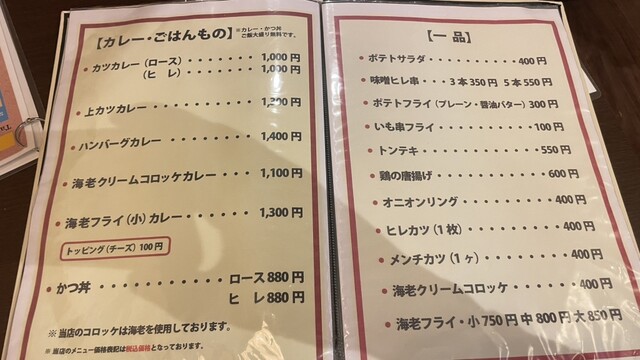 【カレー・ごはんもの】
※カレー・かつ丼
ご飯大盛り無料です。
• カツカレー（ロース）・・・・・・・ 1,000 円
（ヒ　レ）・・・・・・・ 1,000 円
• 上カツカレー ・・・・・・・・・ 1,200 円
• ハンバーグカレー ・・・・・・・ 1,400 円
• 海老クリームコロッケカレー ・・・ 1,100 円
• 海老フライ（小）カレー・・・・・・ 1,300 円
トッピング（チーズ）100 円
• かつ丼 ・・・・・・・・・・・ ロース 880 円
ヒ　レ 880 円
※ 当店のコロッケは海老を使用しております。
※ 当店のメニュー価格表記は税込価格となっております。
【一 品】
• ポテトサラダ・・・・・・・・・・400 円
• 味噌ヒレ串・・・3 本 350 円 5 本 550 円
• ポテトフライ（プレーン・醤油バター）300 円
• いも串フライ・・・・・・・・・・・100 円
• トンテキ・・・・・・・・・・・・・550 円
• 鶏の唐揚げ・・・・・・・・・・・・600 円
• オニオンリング・・・・・・・・・・400 円
• ヒレカツ（1 枚）・・・・・・・・・・400 円
• メンチカツ（1 ヶ）・・・・・・・・・400 円
• 海老クリームコロッケ・・・・・・400 円
• 海老フライ・小 750 円 中 800 円 大 850 円